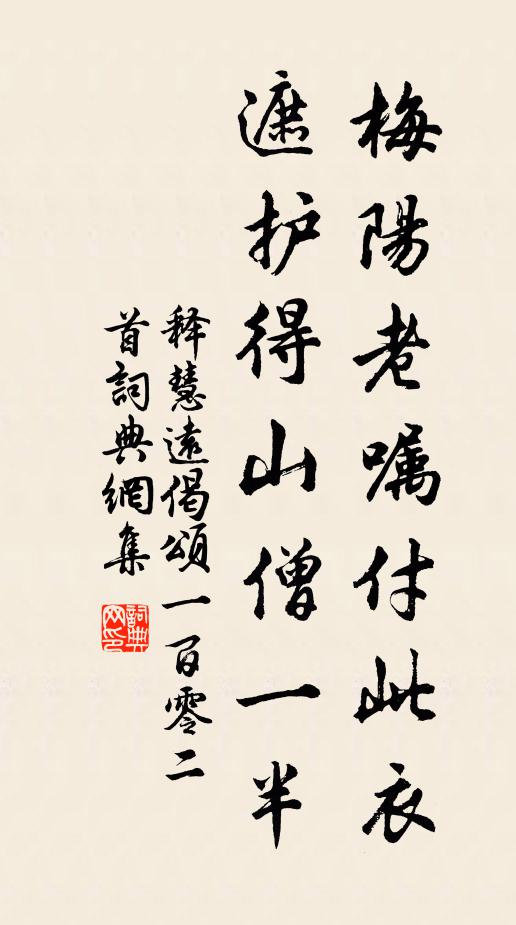 梅陽老嘱付此衣
遮护得山僧一半
释慧遠偈頌一百零二
首詞典網集
詞典网印